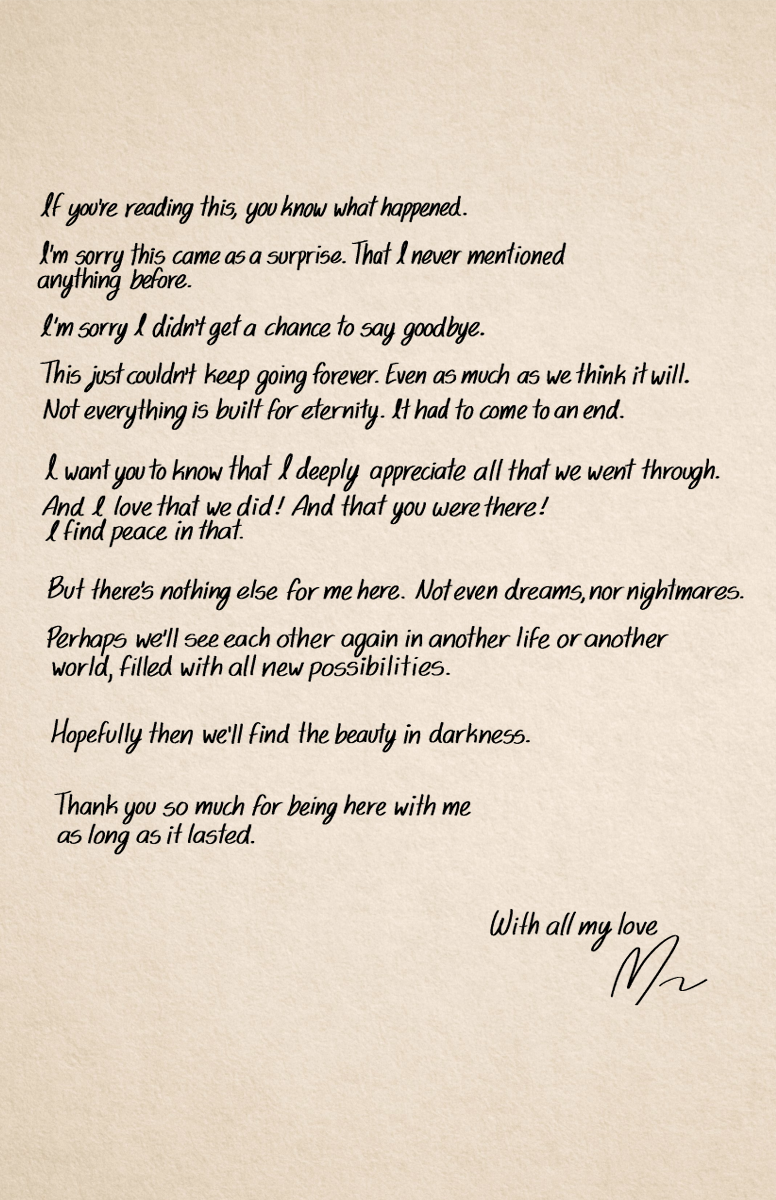 If you're reading this, you know what happened.
I'm sorry this came as a surprise. That I never mentioned
anything before.
I'm sorry I didn't get a chance to say goodbye.
This just couldn't keep going forever. Even as much as we think it will.
Not everything is built for eternity. It had to come to an end.
I want you to know that I deeply appreciate all that we went through.
And I love that we did! And that you were there!
I find peace in that.
But there's nothing else for me here. Not even dreams, nor nightmares.
Perhaps we'll see each other again in another life or another
world, filled with all new possibilities.
Hopefully then we'll find the beauty in darkness.
Thank you so much for being here with me
as long as it lasted.
With all my love